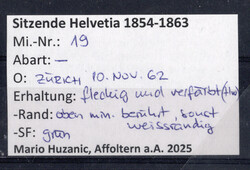 Sitzende Helvetia 1854-1863
Mi.-Nr.: 19
Abart: —
O: ZÜRICH 10. NOV. 62
Erhaltung: fleckig und verfärbt
-Rand: oben min. berührt, sonst
weissrandig
-SF: grün
Mario Huzanic, Affoltern a.A. 2025